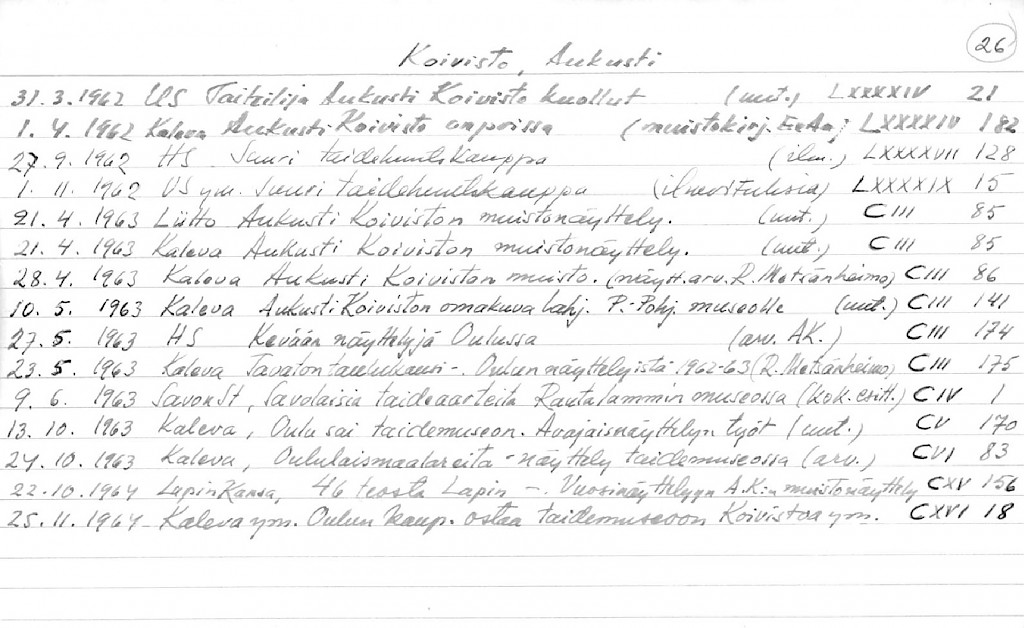 26
Koivisto, Aukusti
31.3.1962 US Taiteilija Aukusti Koivisto kuollut (uut.) LXXXXIV 21
1.4.1962 Kaleva Aukusti Koivisto in (muistokirj. LXXXXIV 182
27.9.1962 HS Suuri taidehuutokauppa (ilm.) LXXXXVII 128
1.11.1962 US ym. Suuri taidehuutokauppa (ilmoituksia) LXXXXIX 15
21.4.1963 Liitto Aukusti Koiviston muistonäyttely. (uut.) CIII 85
21.4.1963 Kaleva Aukusti Koiviston muistonäyttely. (uut.) CIII 85
28.4.1963 Kaleva Aukusti Koiviston muisto. (näytt.arv. R. Metsänheimo) CIII 86
10.5.1963 Kaleva Aukusti Koiviston omakuva lahj. P.-Pohj. museolle (uut.) CIII 141
27.5.1963 HS Kevään näyttelyjä Oulussa (arv. AK.) CIII 174
23.5.1963 Kaleva Tavaton taulukausi -. Oulun näyttelyistä 1962-63 (R. Metsänheimo) CIII 175
9.6.1963 SavonSt, Savolaisia taideaarteita Rautalammin museossa (kok.esitt.) CIV 1
13.10.1963 Kaleva, Oulu sai taidemuseon. Avajaisnäyttelyn työt (uut.) CV 170
24.10.1963 Kaleva, Oululaismaalareita -näyttely taidemuseossa (arv.) CVI 83
22.10.1964 LapinKansa, 46 teosta Lapin -. Vuosinäyttelyyn A.K:n muistonäyttely CXV 156
25.11.1964 Kaleva ym. Oulun kaup. ostaa taidemuseoon Koivistoa ym. CXVI 18